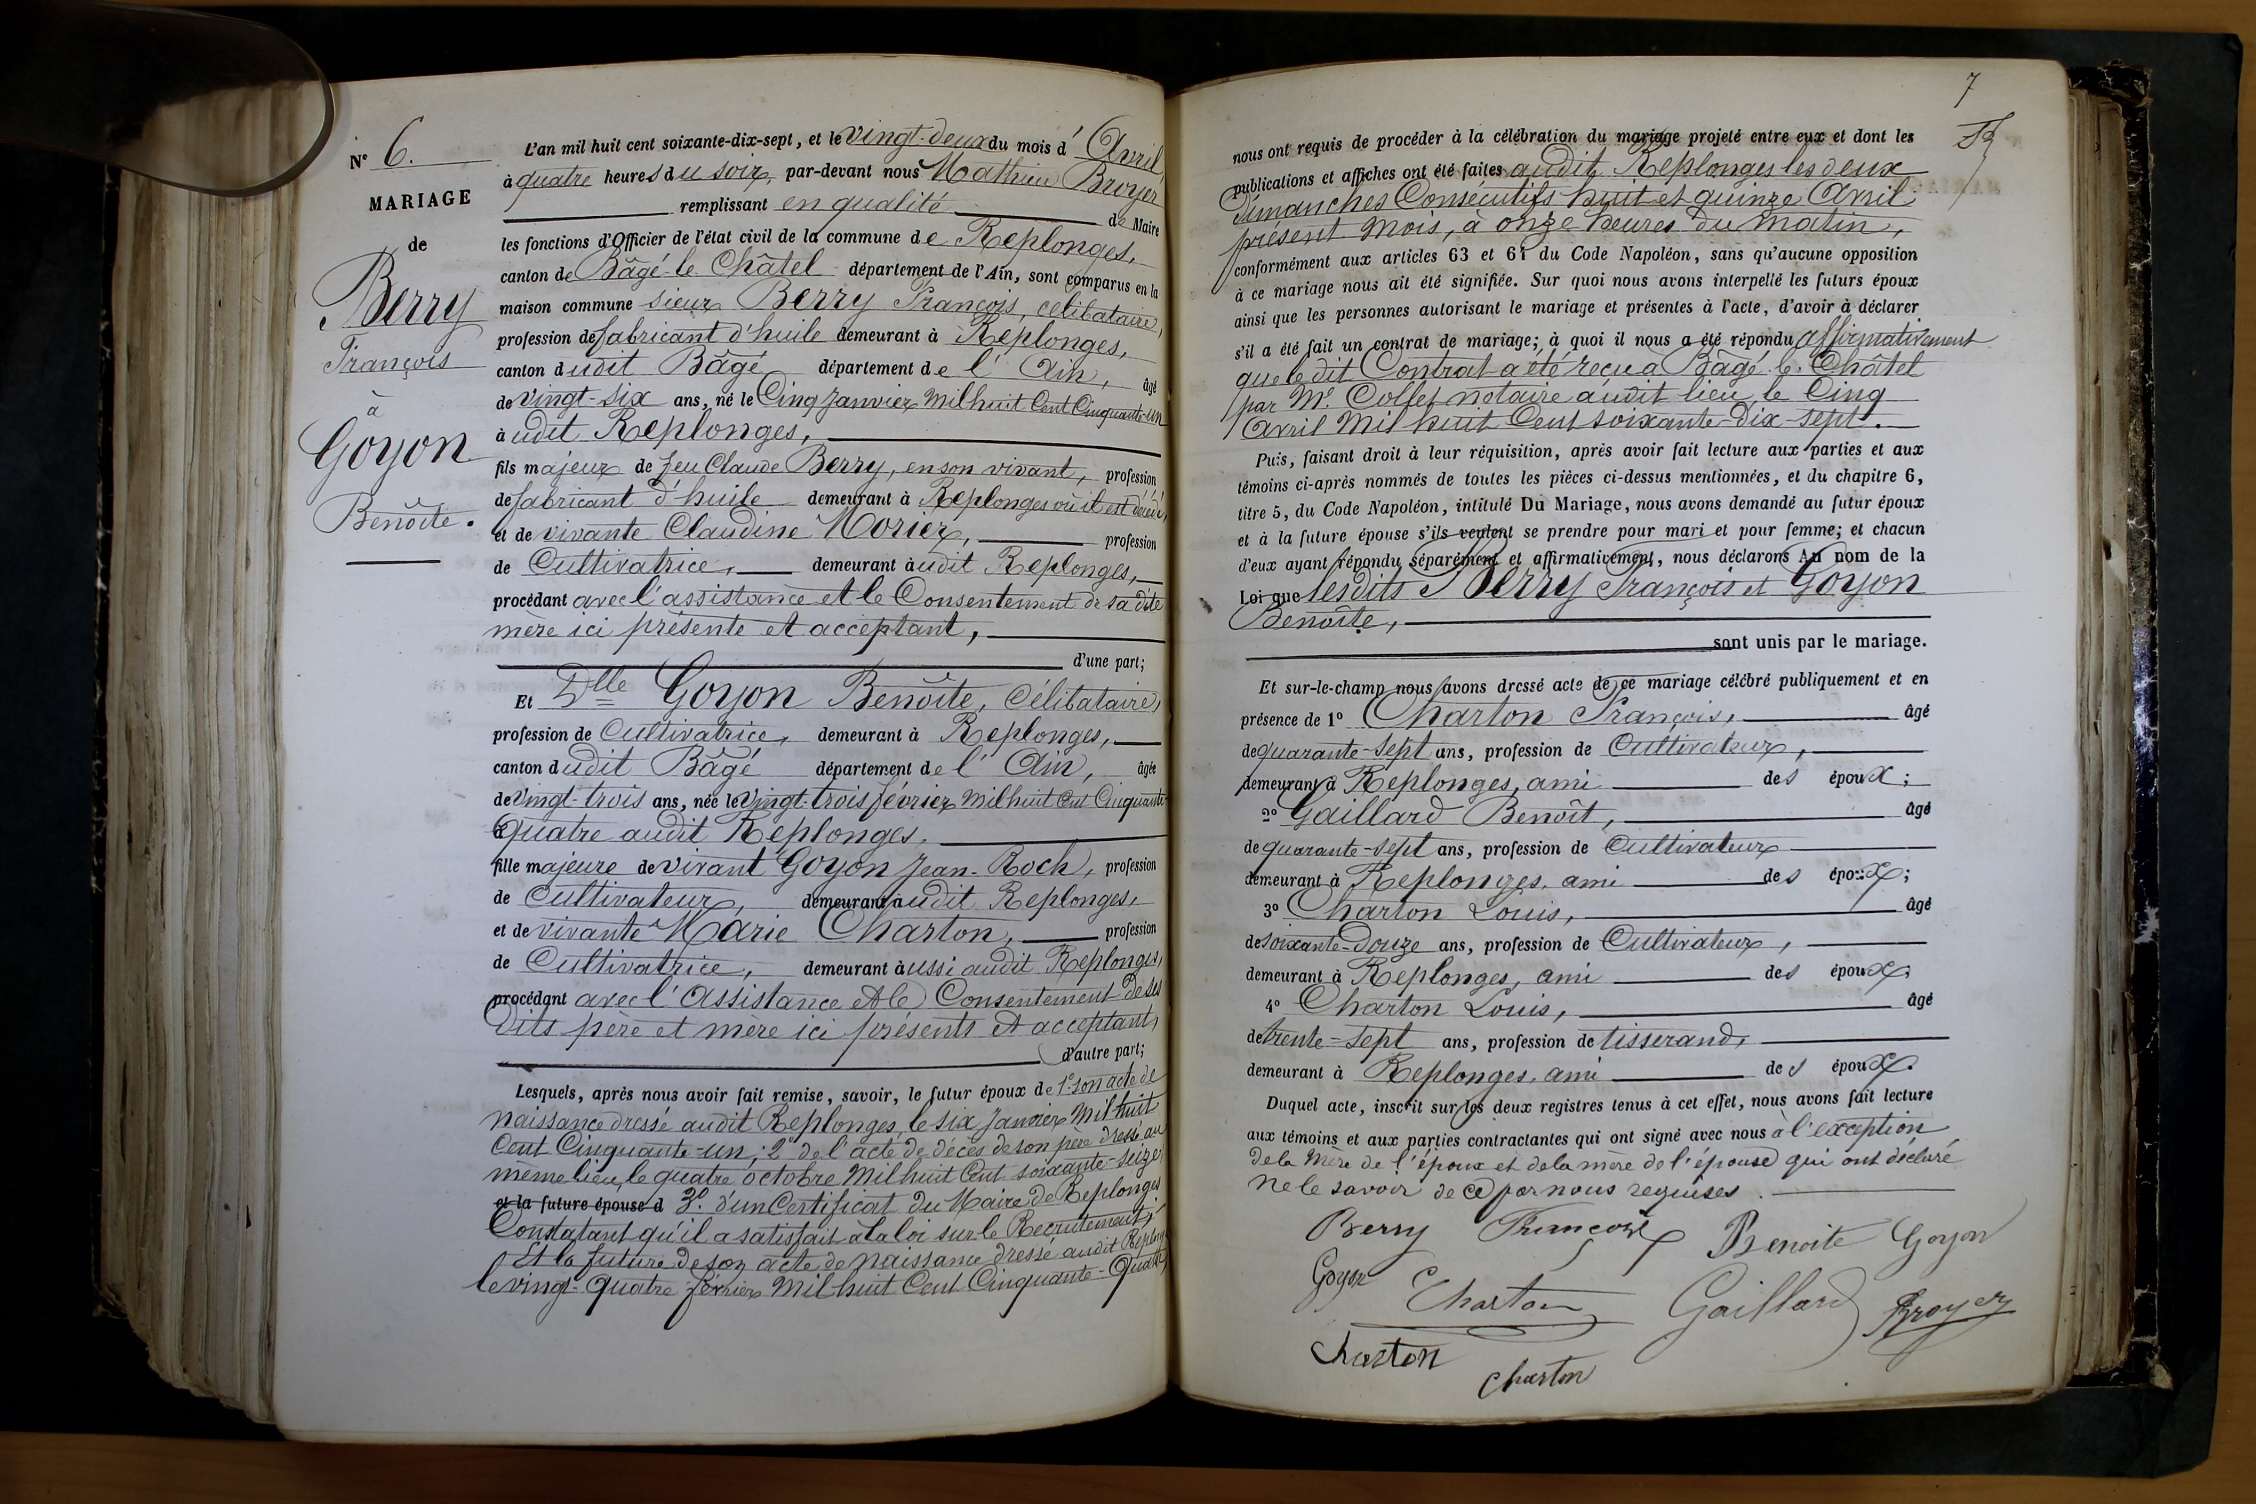 N° 6.
MARIAGE
de
Berry
François
à
Goyon
Benoîte.
L'an mil huit cent soixante-dix-sept, et le vingt-deux du mois d'Avril,
à quatre heures du soir, par-devant nous Mathieu Broyer
remplissant en qualité de Maire
les fonctions d'Officier de l'état civil de la commune de Replonges,
canton de Bâgé-le-Châtel département de l'Ain, sont comparus en la
maison commune sieur Berry François, célibataire,
profession de fabricant d'huile demeurant à Replonges,
canton dudit Bâgé département de l'Ain, âgé
de vingt-six ans, né le Cinq Janvier Mil huit Cent Cinquante-un
àudit Replonges,
fils majeur de feu Claude Berry, en son vivant, profession
de fabricant d'huile demeurant à Replonges où il est décédé,
et de vivante Claudine Morier, profession
de Cultivatrice, demeurant àudit Replonges,
procédant avec l'assistance et le Consentement de sa dite
mère ici présente et acceptant,
d'une part;
Et Dlle Goyon Benoîte, Célibataire,
profession de Cultivatrice, demeurant à Replonges,
canton dudit Bâgé département de l'Ain, âgée
de vingt-trois ans, née le vingt-trois février Mil huit Cent Cinquante-
quatre audit Replonges.
fille majeure de vivant Goyon Jean-Roch, profession
de Cultivateur, demeurant àudit Replonges,
et de vivante Marie Charton, profession
de Cultivatrice, demeurant àussi audit Replonges,
procédant avec l'assistance et le Consentement de ses
dits père et mère ici présents et acceptant,
d'autre part;
Lesquels, après nous avoir fait remise, savoir, le futur époux de 1° son acte de
naissance dressé audit Replonges, le six Janvier Mil huit
Cent Cinquante-un; 2° de l'acte de décès de son père dressé au
même lieu, le quatre octobre Mil huit Cent soixante-seize
et la future épouse d 3° d'un Certificat du Maire de Replonges
Constatant qu'il a satisfait à la loi sur le Recrutement;
Et la future de son acte de naissance dressé audit Replong
le vingt-quatre février Mil huit Cent Cinquante-Quatre,
7
nous ont requis de procéder à la célébration du mariage projeté entre eux et dont les
publications et affiches ont été faites audit Replonges les deux
Dimanches Consécutifs huit et quinze Avril
présent Mois, à onze heures du matin,
conformément aux articles 63 et 64 du Code Napoléon, sans qu'aucune opposition
à ce mariage nous ait été signifiée. Sur quoi nous avons interpellé les futurs époux
ainsi que les personnes autorisant le mariage et présentes à l'acte, d'avoir à déclarer
s'il a été fait un contrat de mariage; à quoi il nous a été répondu affirmativement
que le dit Contrat a été reçu à Bâgé-le-Châtel
par Me Collet notaire audit lieu, le Cinq
Avril Mil huit Cent soixante-Dix-sept.
Puis, faisant droit à leur réquisition, après avoir fait lecture aux parties et aux
témoins ci-après nommés de toutes les pièces ci-dessus mentionnées, et du chapitre 6,
titre 5, du Code Napoléon, intitulé Du Mariage, nous avons demandé au futur époux
et à la future épouse s'ils veulent se prendre pour mari et pour femme; et chacun
d'eux ayant répondu séparément et affirmativement, nous déclarons Au nom de la
Loi que lesdits Berry François et Goyon
Benoîte,
sont unis par le mariage.
Et sur-le-champ nous avons dressé acte de ce mariage célébré publiquement et en
présence de 1° Charton François, âgé
de quarante-sept ans, profession de Cultivateur,
demeurant à Replonges, ami des époux;
2° Gaillard Benoît, âgé
de quarante-sept ans, profession de Cultivateur
demeurant à Replonges, ami des époux;
3° Charton Louis, âgé
de soixante-douze ans, profession de Cultivateur,
demeurant à Replonges, ami des époux;
4° Charton Louis, âgé
de trente-sept ans, profession de tisserand,
demeurant à Replonges, ami des époux.
Duquel acte, inscrit sur les deux registres tenus à cet effet, nous avons fait lecture
aux témoins et aux parties contractantes qui ont signé avec nous à l'exception
de la Mère de l'époux et de la mère de l'épouse qui ont déclaré
ne le savoir de ce par nous requises.
Berry François Benoite Goyon
Goyon Charton Gaillard Broyer
Charton
Charton